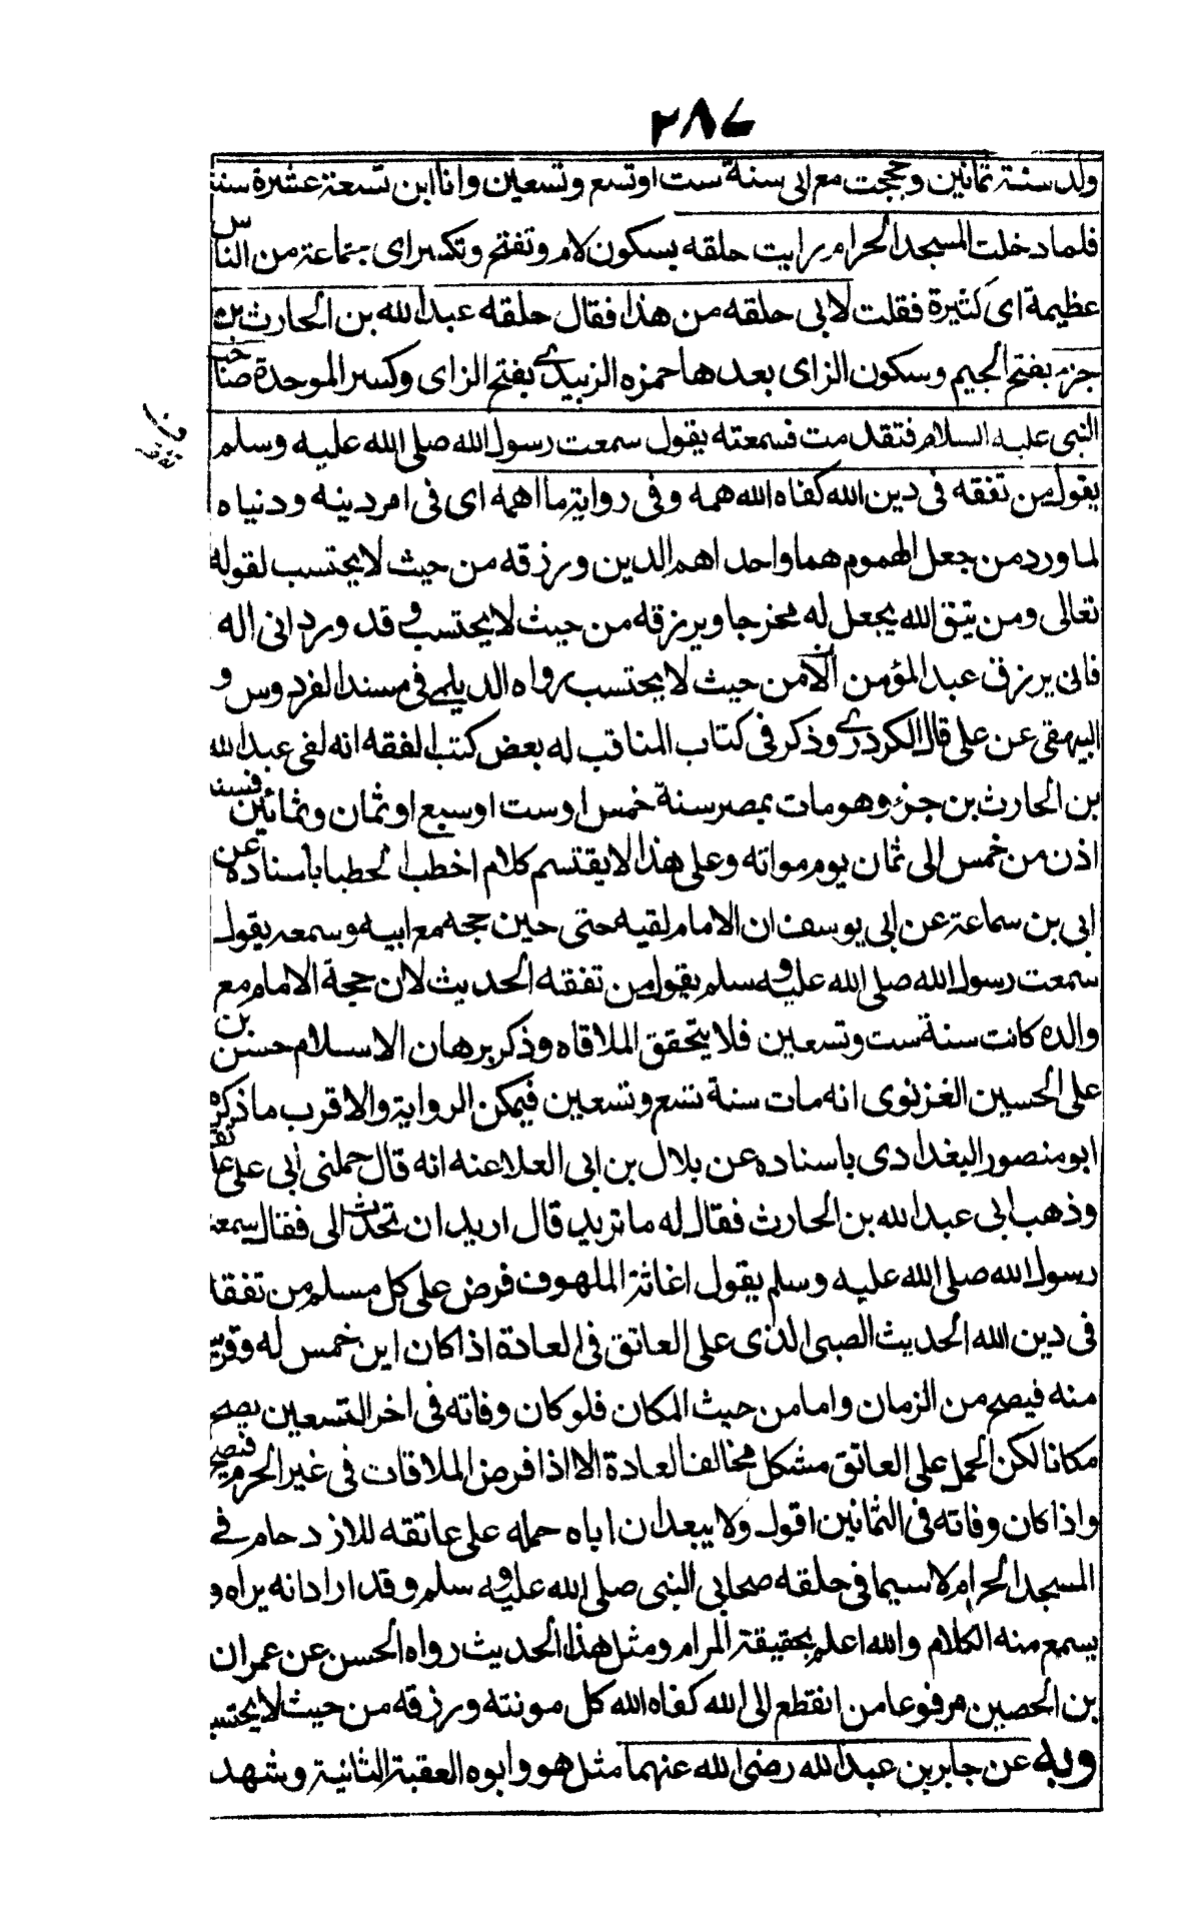 ۲۸۷
ولد سنة ثمانين وحججت مع ابى سنة ست اوتسع وتسعين وانا ابن تسعة عشرة سنة
فلما دخلت المسجد الحرام رايت حلقه بسكون لام وتفتح وتكسر اى جماعة من الناس
عظيمة اى كثيرة فقلت لابى حلقه من هذا فقال حلقه عبد الله بن الحارث بن
جزء بفتح الجيم وسكون الزاى بعدها حمزه الزبيدى بفتح الزاى وكسر الموحدة صاحب
النبى عليه السلام فتقدمت فسمعته يقول سمعت رسول الله صلى الله عليه وسلم
يقول من تفقه فى دين الله كفاه الله همه وفى رواية ما اهمه اى فى امر دينه ودنياه
لما ورد من جعل الهموم هما واحد اهم الدين ورزقه من حيث لا يحتسب لقوله
تعالى ومن يتق الله يجعل له مخرجا ويرزقه من حيث لا يحتسب وقد ورد انى اله
فانى يرزق عبد المؤمن الا من حيث لا يحتسب رواه الديلمى فى مسند الفردوس و
البيهقى عن على قال الكردرى وذكر فى كتاب المناقب له بعض كتب الفقه انه لقى عبد الله
بن الحارث بن جزء وهو مات بمصر سنة خمس اوست اوسبع اوثمان وثمانين فسنه
اذن من خمس الى ثمان يوم مواته وعلى هذا لا يقتسم كلام اخطب الخطبا باسناده عن
ابى بن سماعة عن ابى يوسف ان الامام لقيه حتى حين حجه مع ابيه وسمعه يقول
سمعت رسول الله صلى الله عليه وسلم يقول من تفقه الحديث لان حجة الامام مع
والده كانت سنة ست وتسعين فلا يتحقق الملاقاه وذكر برهان الاسلام حسن بن
على الحسين الغزنوى انه مات سنة تسع وتسعين فيمكن الرواية والاقرب ما ذكره
ابو منصور البغدادى باسناده عن بلال بن ابى العلا عنه انه قال حملنى ابى على عاتقه
وذهب ابى عبد الله بن الحارث فقال له ما تريد قال اريد ان تحدث الى فقال سمعت
رسول الله صلى الله عليه وسلم يقول اغاثة الملهوف فرض على كل مسلم من تفقه
فى دين الله الحديث الصبى الذى على العاتق فى العادة اذا كان ابن خمس له وقرب
منه فيصح من الزمان واما من حيث المكان فلو كان وفاته فى اخر التسعين يصح
مكانا لكن الحمل على العاتق مشكل مخالف العادة الا اذا فرض الملاقات فى غير الحرم فيصح
واذا كان وفاته فى الثمانين اقول ولا يبعد ان اباه حمله على عاتقه للازدحام فى
المسجد الحرام لا سيما فى حلقه صحابى النبى صلى الله عليه وسلم وقد اراد انه يراه و
يسمع منه الكلام والله اعلم بحقيقة المرام ومثل هذا الحديث رواه الحسن عن عمران
بن الحصين مرفوعا من انقطع الى الله كفاه الله كل مونته ورزقه من حيث لا يحتسب
وبه عن جابر بن عبد الله رضى الله عنهما مثل هو وابوه العقبة الثانية وشهد